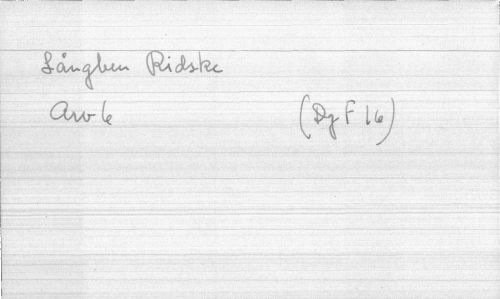 Långben Ridske
Avb (DgF 16)